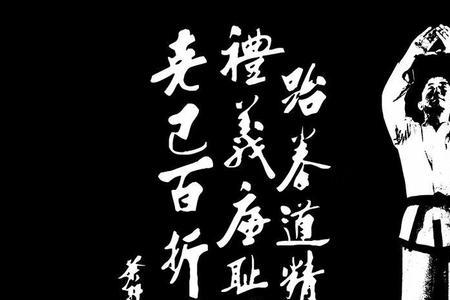 跆拳道精
禮義廉耻
克己百折